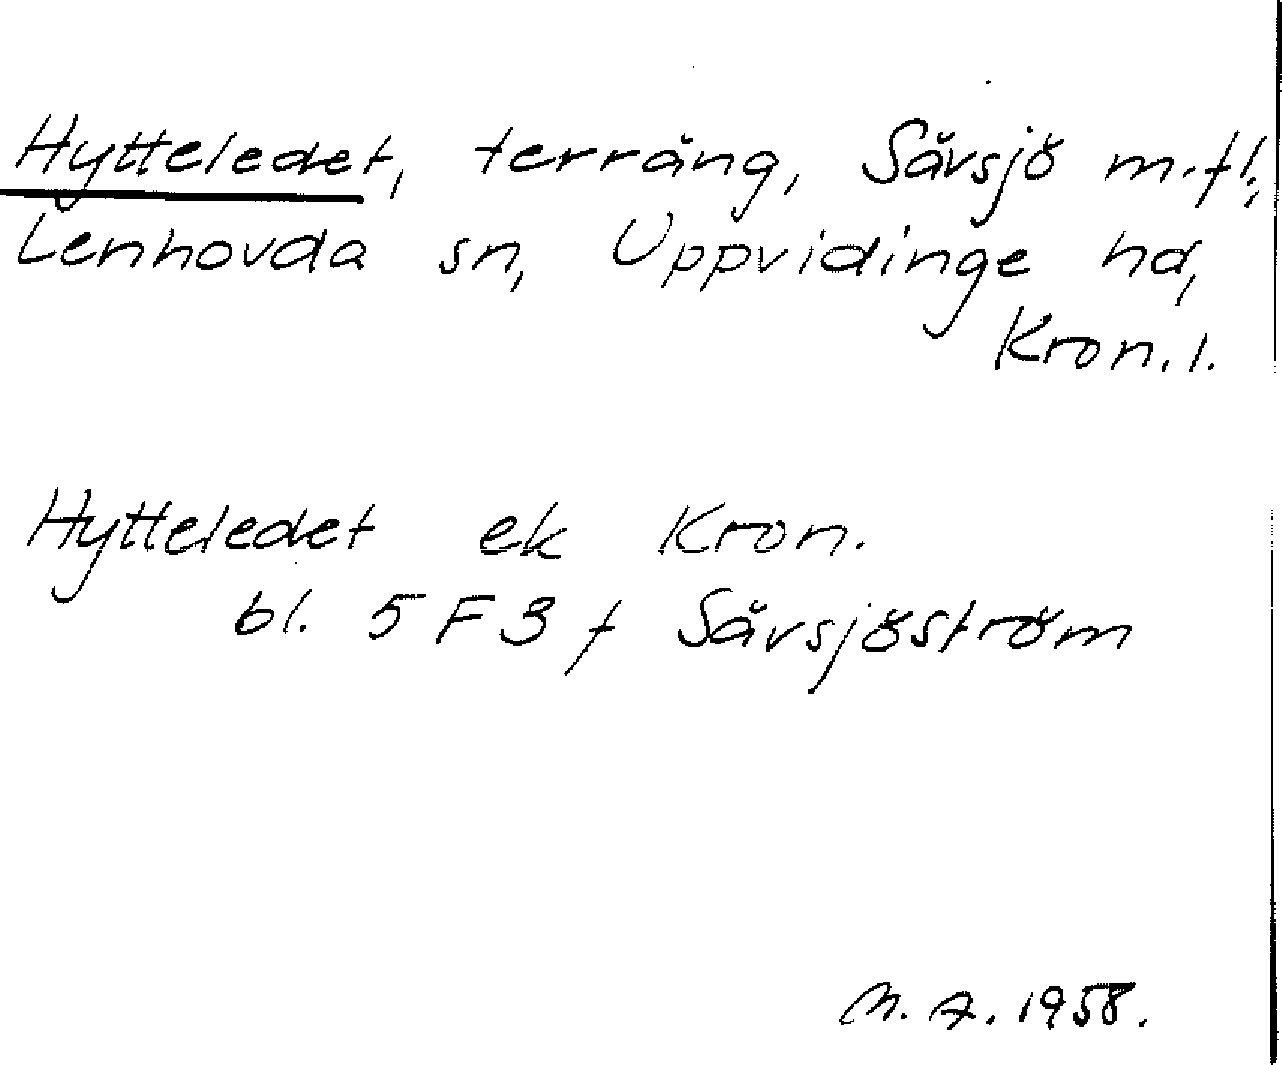 Hytteledet, terräng, Sävsjö m.fl.,
Lenhovda sn, Uppvidinge hd,
Kron.l.
Hytteledet ek Kron.
bl. 5 F 3 f Sävsjöström
M. A. 1958.